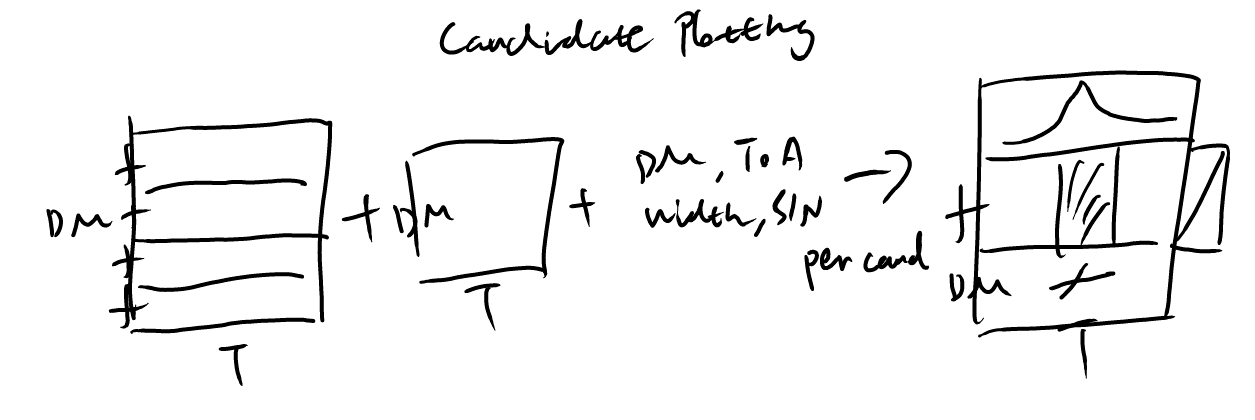 Candidate Plotting
DM
T
+
DM
T
+
DM, ToA
width, S/N
per cand
DM
T